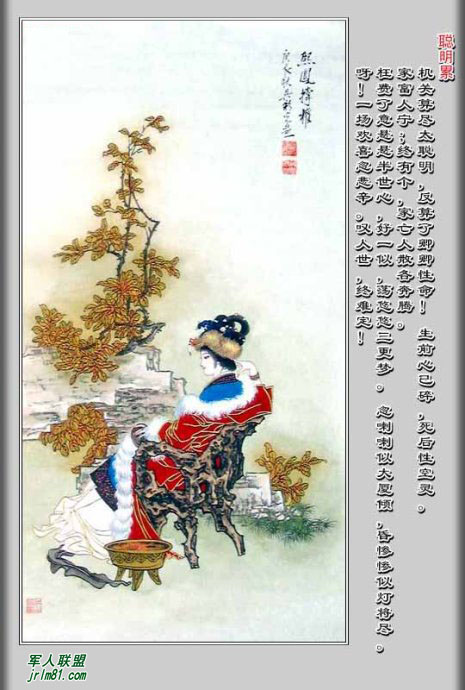 聪明累
机关算尽太聪明,反算了卿卿性命! 生前心已碎,死后性空灵。
家富人宁;终有个,家亡人散各奔腾。
枉费了意悬悬半世心,好一似,荡悠悠三更梦。 忽喇喇似大厦倾,昏惨惨似灯将尽。
呀!一场欢喜忽悲辛。叹人世,终难定!
熙鳳權
军人联盟
jrlm81.com